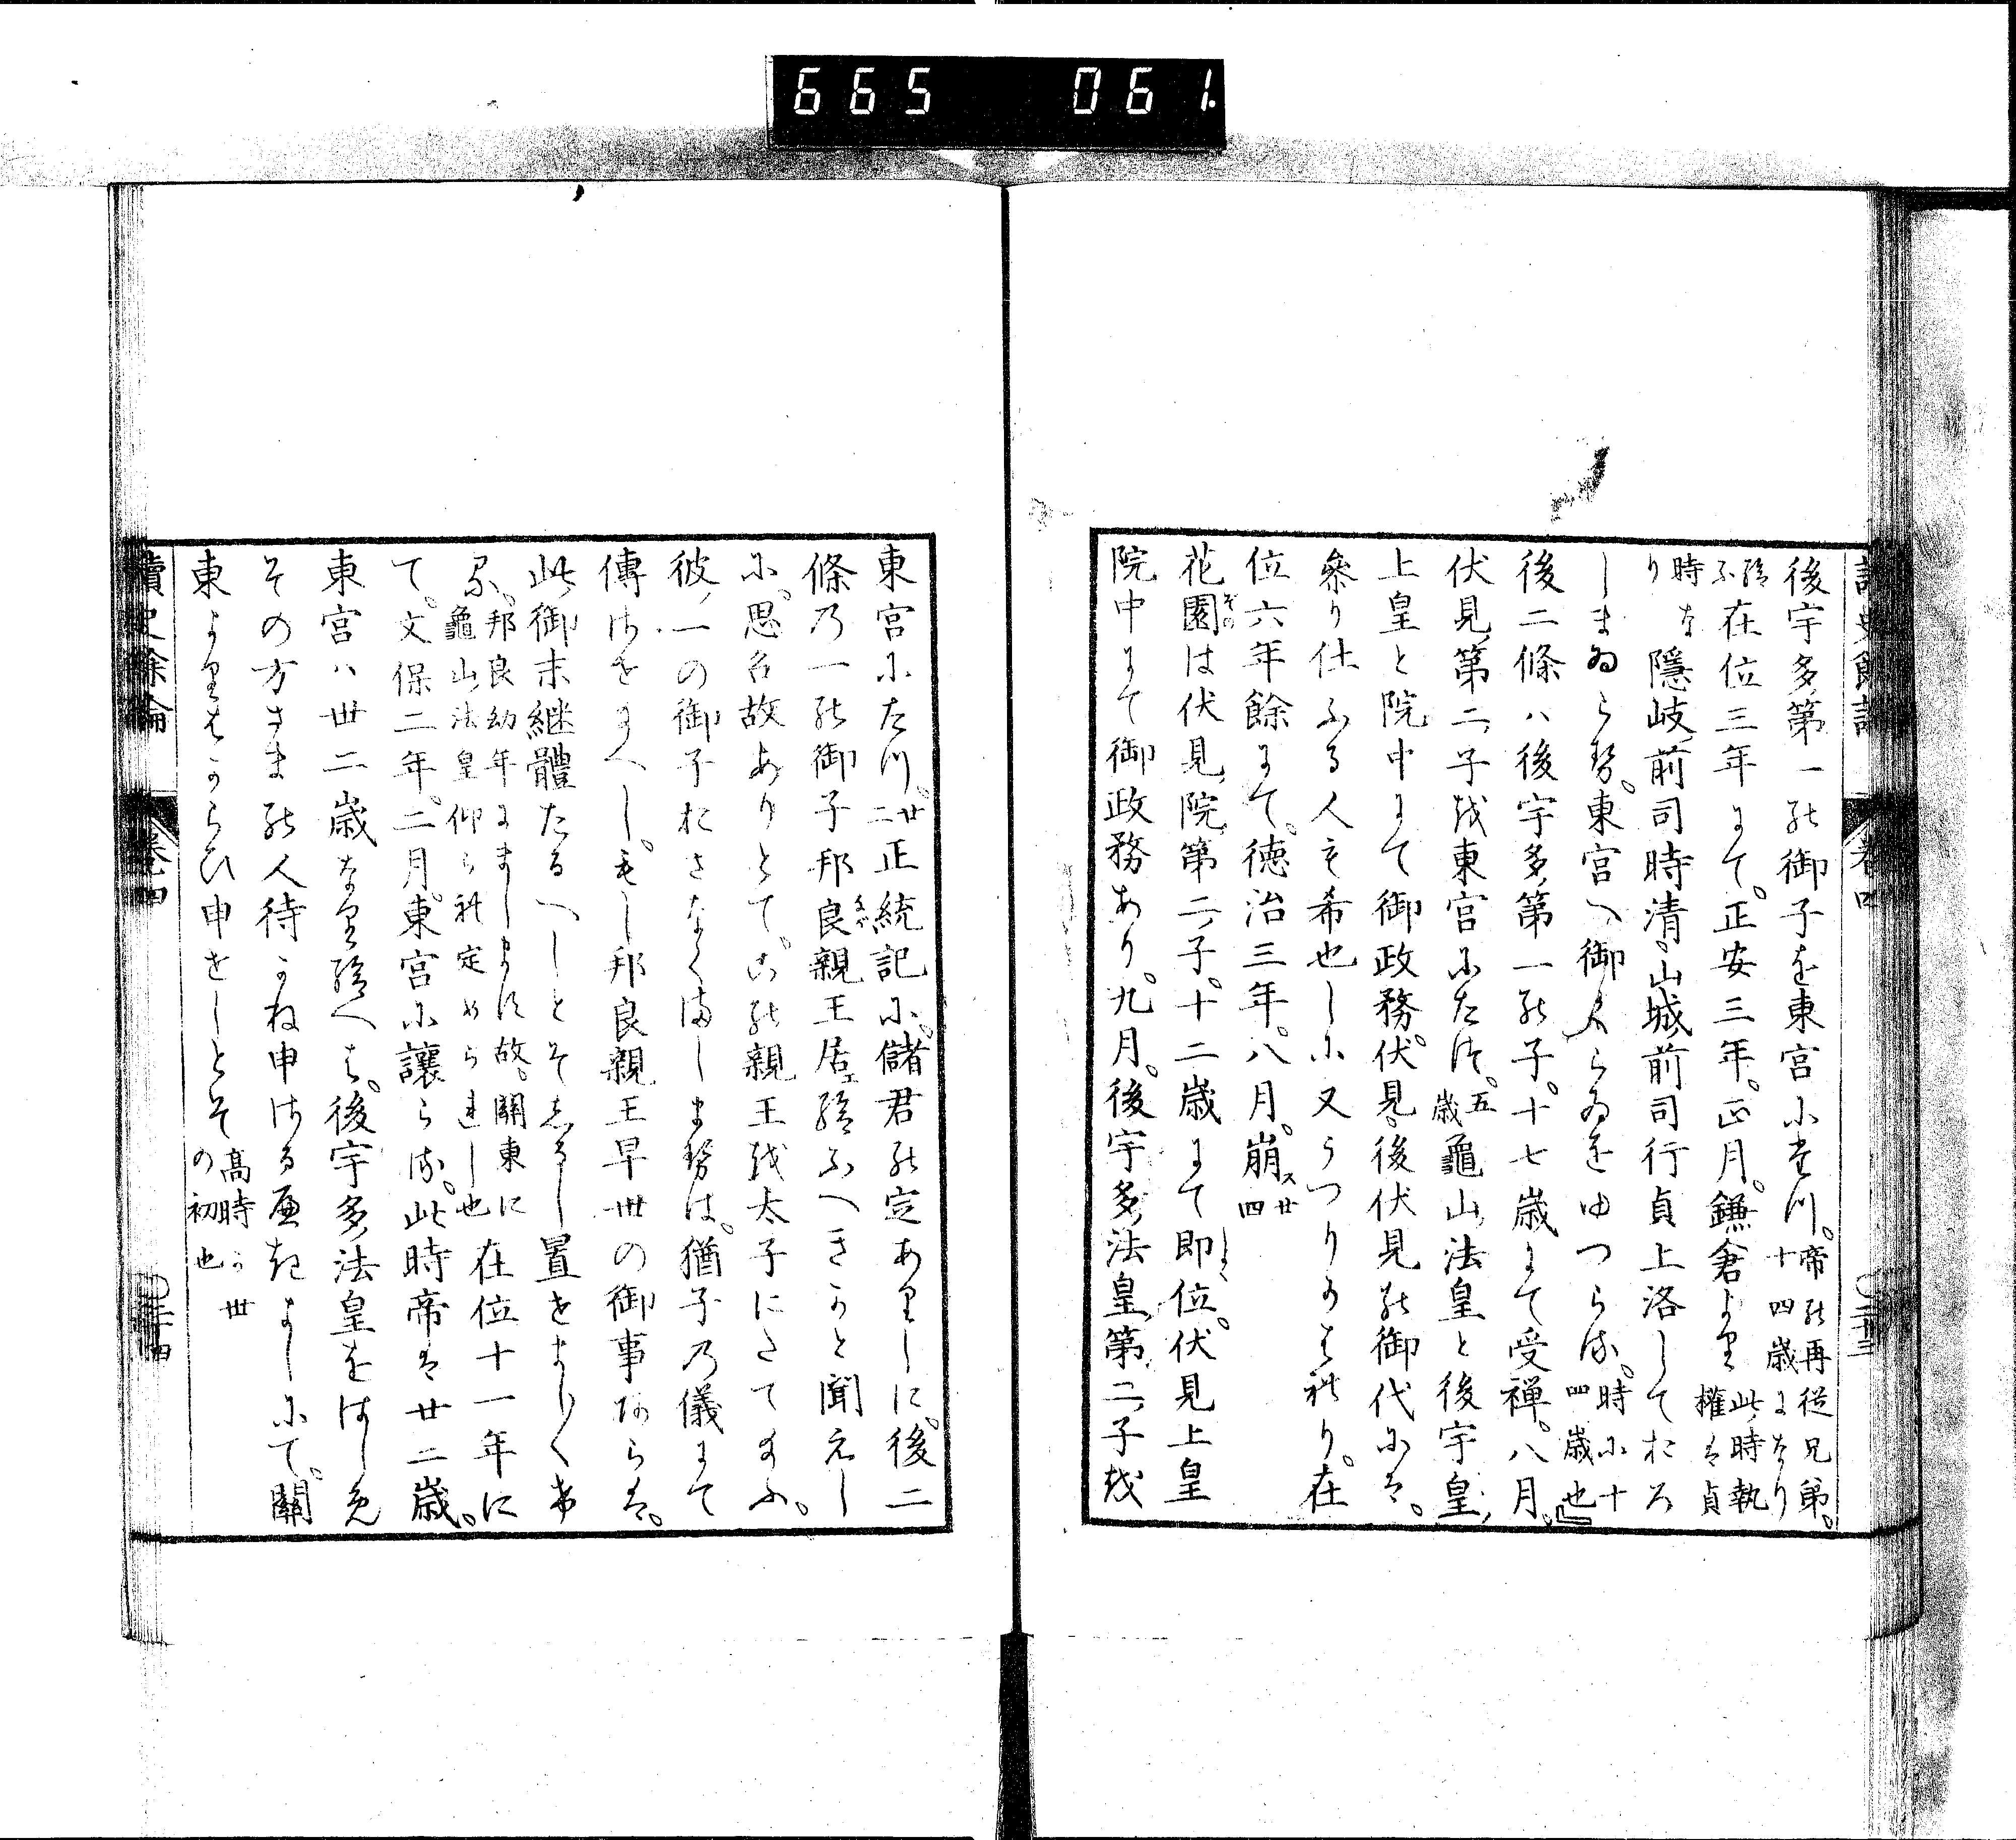 665 061
讀史餘論 卷四 〇三十三
後宇多第一の御子を東宮にたつ。帝の再従兄弟。十四歳になり
給ふ在位三年にて。正安三年。正月。鎌倉より此時執權は貞
時なり隱岐前司時清。山城前司行貞上洛して
しまゐらせ。東宮へ御くらゐをゆつらる。時に十四歳也
後二條ハ後宇多第一の子。十七歳にて受禅。八月。
伏見第二ノ子を東宮にたつ。五歳龜山法皇と後宇皇
上皇と院中にて御政務。伏見。後伏見の御代には。
參り仕ふる人も希也しに又うつりかはれり。在
位六年餘にて。徳治三年。八月。崩ス廿四
花園は伏見院第二ノ子。十二歳にて即位。伏見上皇
院中にて御政務あり。九月。後宇多法皇第二ノ子を
東宮にたつ。廿二正統記に。儲君の定ありしに。後二
條乃一の御子邦良親王居ヱ給ふへきかと聞えし
に。思召故ありとて。この親王を太子にたてたまふ。
彼ノ一の御子おさなくましませは。猶子乃儀にて
傳はせたまへし。もし邦良親王早世の御事あらは。
此御末継體たるへしとそしるし置せましく
る。邦良幼年にまします故。關東に龜山法皇仰られ定められし也在位十一年に
て。文保二年。二月。東宮に譲らる。此時帝は廿二歳。
東宮ハ卅二歳なり給へは。後宇多法皇をはしめ
その方さまの人待かね申さるるよしにて。關
東よりはからひ申せしとそ高時か世の初也
讀史餘論 卷四 〇三十四